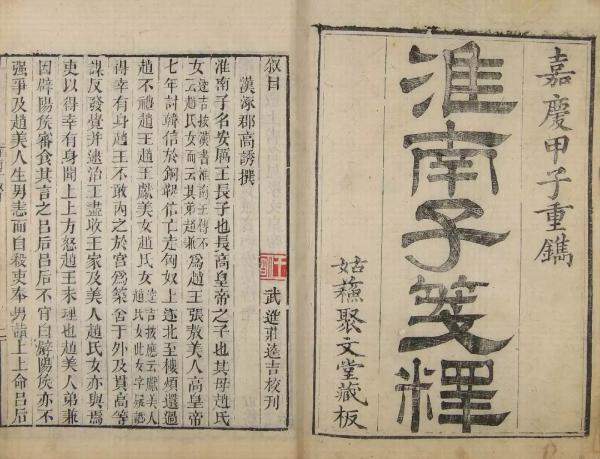 嘉慶甲子重鐫
淮南子箋釋
姑蘇聚文堂藏板
叙目
武進莊逵吉校刊
漢涿郡高誘撰
淮南子名安厲王長子也長高皇帝之子也其母趙氏
女逵吉按漢書淮南王傳不云趙氏女而云其弟趙兼為趙王張敖美人高皇帝
七年討韓信於銅鞮信亡走匈奴上遂北至樓煩還過
趙不禮趙王趙王獻美女趙氏女逵吉按應云獻美人趙氏女此女字疑譌
得幸有身趙王不敢內之於宮為築舍于外及貫高等
謀反發覺并逮治王盡收王家及美人趙氏女亦與焉
吏以得幸有身聞上上方怒趙王未理也趙美人弟兼
因辟陽侯審食其言之呂后呂后不肯白辟陽侯亦不
強爭及趙美人生男恚而自殺吏奉男詣上上命呂后